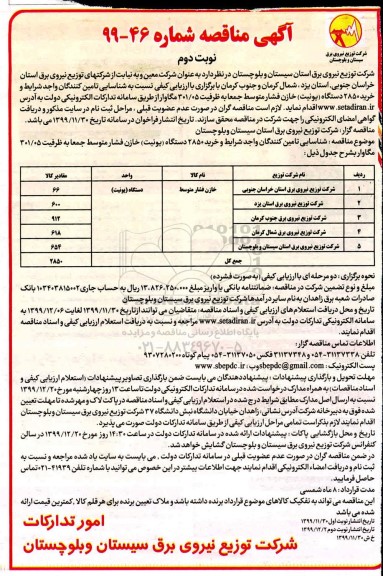 شرکت توزیع نیروی برق
سیستان و بلوچستان
آگهی مناقصه شماره ۴۶-۹۹
نوبت دوم
شرکت توزیع نیروی برق استان سیستان و بلوچستان در نظر دارد به عنوان شرکت معین و به نیابت از شرکتهای توزیع نیروی برق استان
خراسان جنوبی، استان یزد، شمال کرمان و جنوب کرمان با برگزاری با ارزیابی کیفی نسبت به شناسایی تامین کنندگان واجد شرایط و
خرید ۲۸۵۰ دستگاه (یونیت) خازن فشار متوسط جمعا به ظرفیت ۳۰۱/۰۵ مگاوار از طریق سامانه تدارکات الکترونیکی دولت به آدرس
www.setadiran.ir اقدام نماید. لازم است مناقصه گران در صورت عدم عضویت قبلی، مراحل ثبت نام در سایت مذکور و دریافت
گواهی امضای الکترونیکی را جهت شرکت در مناقصه محقق سازند. تاریخ انتشار فراخوان در سامانه تاریخ ۱۳۹۹/۱۱/۳۰ می باشد.
مناقصه گزار: شرکت توزیع نیروی برق استان سیستان و بلوچستان
موضوع مناقصه: شناسایی تامین کنندگان واجد شرایط و خرید ۲۸۵۰ دستگاه (یونیت) خازن فشار متوسط جمعا به ظرفیت ۳۰۱/۰۵
مگاوار بشرح جدول ذیل:
ردیف نام شرکت توزیع نام کالا واحد مقادیر کالا
۱ شرکت توزیع نیروی برق استان خراسان جنوبی خازن فشار متوسط دستگاه (یونیت) ۶۶
۲ شرکت توزیع نیروی برق استان یزد ۶۰۰
۳ شرکت توزیع نیروی برق جنوب کرمان ۹۱۲
۴ شرکت توزیع نیروی برق شمال کرمان ۶۱۸
۵ شرکت توزیع نیروی برق استان سیستان و بلوچستان ۶۵۴
جمع کل ۲۸۵۰
نحوه برگزاری: دو مرحله ای با ارزیابی کیفی (به صورت فشرده)
مبلغ و نوع تضمین شرکت در مناقصه: ضمانتنامه بانکی یا واریز مبلغ ۱۳،۸۲۶،۲۵۰،۰۰۰ ریال به حساب جاری ۱۰۳۴۰۳۸۱۵۰۰۲ بانک
صادرات شعبه برق زاهدان به نام سایر درآمدها شرکت توزیع نیروی برق سیستان وبلوچستان
تاریخ و محل دریافت استعلام های ارزیابی کیفی و اسناد مناقصه: متقاضیان می توانند از تاریخ ۱۳۹۹/۱۱/۳۰ لغایت ۱۳۹۹/۱۲/۰۶ به
سامانه الکترونیکی تدارکات دولت به آدرس www.setadiran.ir مراجعه و نسبت به دریافت استعلام ارزیابی کیفی و اسناد مناقصه
اقدام نمایند.
اطلاعات تماس مناقصه گزار:
تلفن ۳۱۱۳۷۳۳۸-۰۵۴ و ۳۱۱۳۷۳۴۸ فکس ۳۱۱۳۷۰۵۰-۰۵۴ پیام کوتاه ۹۳۰۷۲۸۲۰۰
پست الکترونیک: sbepdc@gmail.com وب: www.sbepdc.ir
مهلت تحویل و بارگذاری پیشنهادات: پیشنهاددهندگان می بایست ضمن بارگذاری تصاویر پیشنهادات (استعلام ارزیابی کیفی و
اسناد مناقصات) به همراه مدارک درخواست شده در سامانه تدارکات الکترونیکی دولت تا ساعت ۱۳ روز چهارشنبه مورخ ۱۳۹۹/۱۲/۲۰
نسبت به ارسال اصل مدارک مطابق شرایط درج شده در استعلام ارزیابی کیفی و اسناد مناقصه در پاکت لاک و مهر شده تا مهلت تعیین
شده فوق به دبیرخانه شرکت آدرس نشانی: زاهدان خیابان دانشگاه نبش دانشگاه ۳۷ شرکت توزیع نیروی برق سیستان و بلوچستان
اقدام نمایند لازم بذکر است تمامی مراحل ارزیابی کیفی از طریق سامانه تدارکات دولت صورت می پذیرد.
تاریخ و محل بازگشایی پاکات: پیشنهادات ارائه شده در سامانه تدارکات دولت در ساعت ۱۴:۳۰ روز مورخ ۱۳۹۹/۱۲/۲۰ در سالن
کنفرانس شرکت توزیع نیروی برق سیستان و بلوچستان گشایش خواهد شد.
در ضمن مناقصه گران در صورت عدم عضویت قبلی در سامانه تدارکات دولت، می بایست به سایت یاد شده مراجعه و نسبت به
ثبت نام و دریافت امضاء الکترونیکی اقدام نمایند جهت اطلاعات بیشتر در این خصوص می توانید با شماره تلفن ۴۱۹۳۹-۰۲۱ تماس
حاصل فرمایید.
مدت قرارداد: ۸ ماه شمسی
این مناقصه می تواند به تفکیک کالاهای موضوع قرارداد برنده داشته باشد و ملاک تعیین برنده برای هر قلم کالا، کمترین قیمت ارائه
شده می باشد
تاریخ انتشار نوبت اول ۱۳۹۹/۱۱/۳۰
تاریخ انتشار نوبت دوم ۱۳۹۹/۱۲/۲
خ ش ۱۳۹۹/۱۱/۳۰
امور تدارکات
شرکت توزیع نیروی برق سیستان وبلوچستان